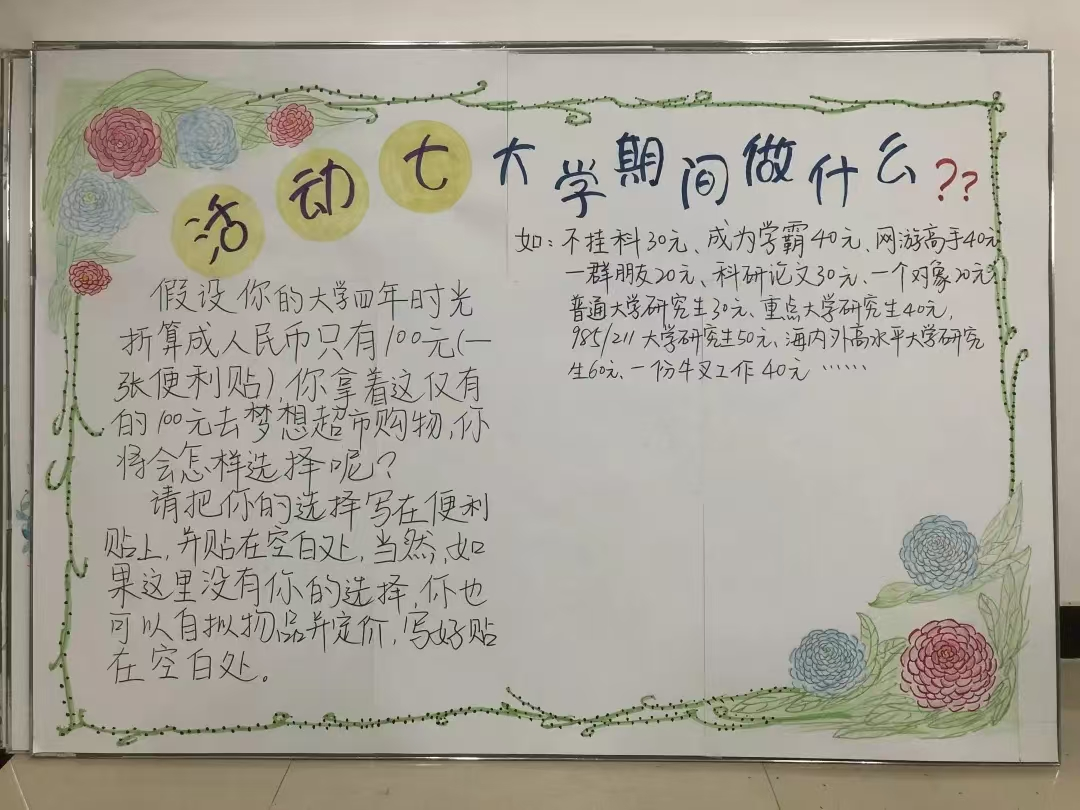 活动七 大学期间做什么??
如：不挂科30元、成为学霸40元、网游高手40元
一群朋友20元、科研论文30元、一个对象20元
普通大学研究生30元、重点大学研究生40元，
985/211大学研究生50元、海内外高水平大学研究
生60元、一份牛叉工作40元……
假设你的大学四年时光
折算成人民币只有100元(一
张便利贴)，你拿着这仅有
的100元去梦想超市购物，你
将会怎样选择呢？
请把你的选择写在便利
贴上，并贴在空白处，当然，如
果这里没有你的选择，你也
可以自拟物品并定价，写好贴
在空白处。